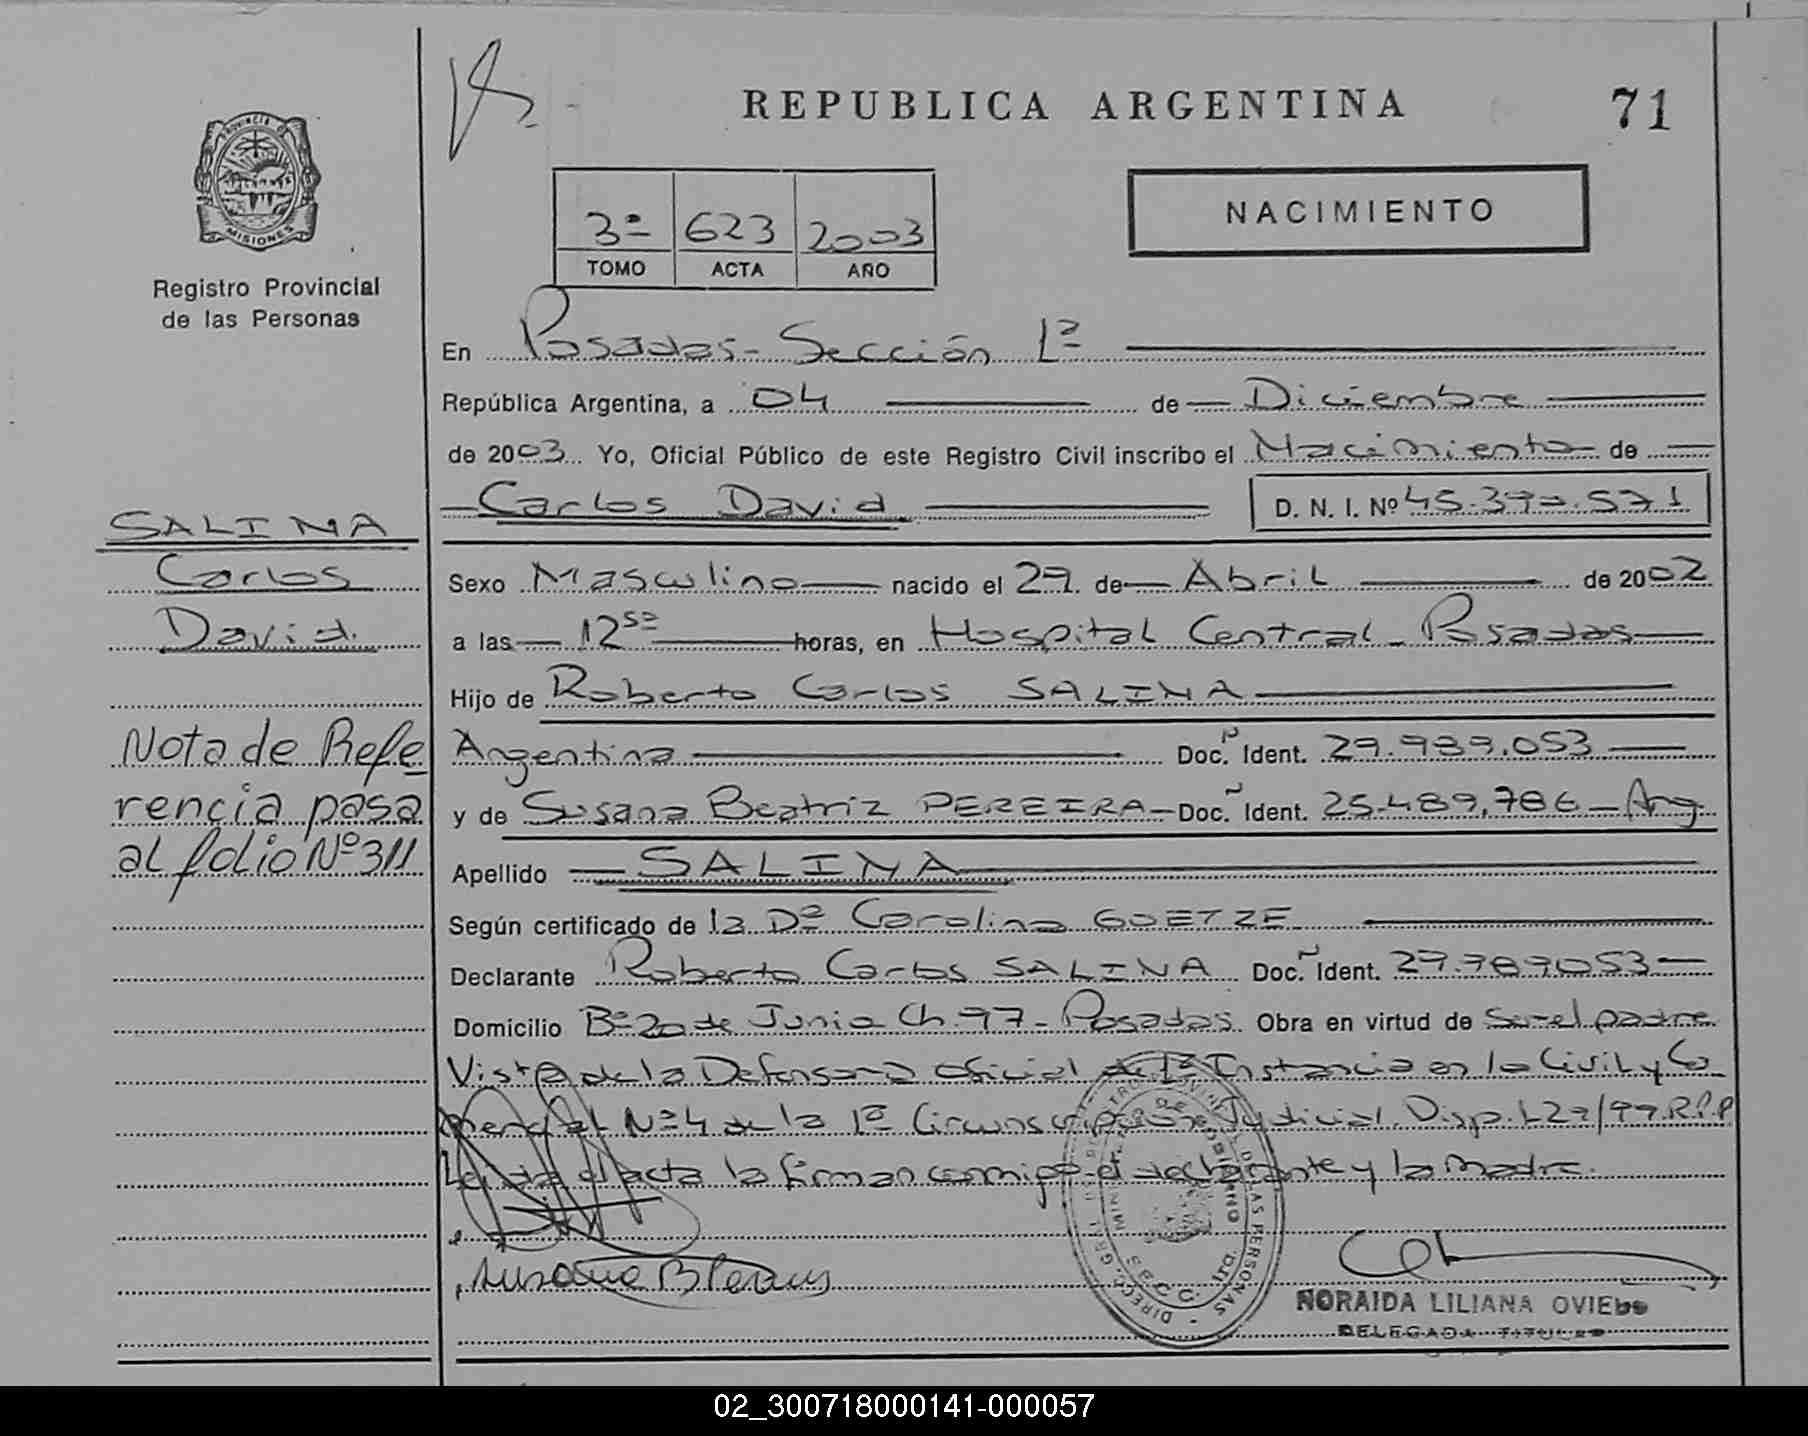 REPUBLICA ARGENTINA
71
PROVINCIA DE
MISIONES
Registro Provincial
de las Personas
3ª 623 2003
TOMO ACTA AÑO
NACIMIENTO
En Posadas - Sección 1ª
República Argentina, a 04 de Diciembre
de 2003 Yo, Oficial Público de este Registro Civil inscribo el Nacimiento de
Carlos David
D. N. I. Nº
SALINA
Carlos
David.
Sexo Masculino nacido el 29 de Abril de 2002
a las 12 50 horas, en Hospital Central - Posadas
Hijo de Roberto Carlos SALINA
Nota de Refe
rencia pasa
al folio Nº 311
Argentina Doc. Ident. 29.989.053
y de Susana Beatriz PEREIRA - Doc. Ident. 25.489.786 - Arg.
Apellido SALINA
Según certificado de la Dª Carolina GOETZE
Declarante Roberto Carlos SALINA Doc. Ident.
Domicilio Bº 20 de Junio Ch. 97 - Posadas. Obra en virtud de ser el padre
Vista de la Defensora Oficial de 1ª Instancia en lo Civil y Co
mercial Nº 4 de la 1ª Circunscripción Judicial. Disp. 129/99.R.P.P
Leida el acta la firman conmigo el declarante y la madre.
NORAIDA LILIANA OVIEDO
DELEGADA TITULAR
02_300718000141-000057